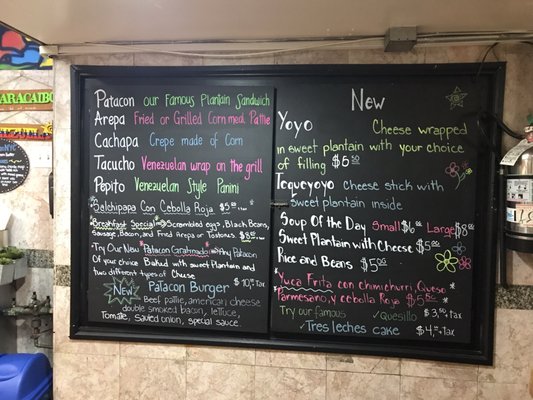 ARACAIBO
Patacon our Famous Plantain Sandwich
Arepa Fried or Grilled Corn meal Patae
Cachapa Crepe made of Corn
Tacucho Venezuelan wrap on the grill
Pepito Venezuelan Style Panini
*Salchipapa Con Cebolla Roja $5
*Breakfast Special* Scrambled egg, Black Beans,
Sausage, Bacon, and Fried Arepa or Tostones $8
Try Our New Patacon Gratinado with Any Patacon
Of your choice Baked with sweet Plantain and
two different types of Cheese $10
New Patacon Burger
Beef pattie, american, cheese
double smoked bacon, lettuce, $10+tax
Tomato, sauted onion, special sauce.
New
Yoyo Cheese wrapped
in sweet plantain with your choice
of filling $6
Tequeyoyo Cheese stick with
sweet plantain inside
Soup Of the Day Small $6 Large $8
Sweet Plantain with Cheese $5
Rice and Beans $5
*Yuca Frita con chimichurri, Queso
Parmesano, y cebolla Roja $5
Try our famous ✓Quesillo $3.50+tax
✓Tres leches cake $4.50+tax